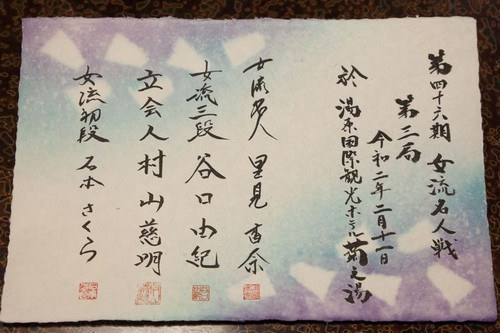 第四十六期 女流名人戦
第三局
令和二年二月十一日
於 湯原国際観光ホテル菊之湯
女流名人 里見香奈
女流三段 谷口由紀
立会人 村山慈明
女流初段 石本さくら